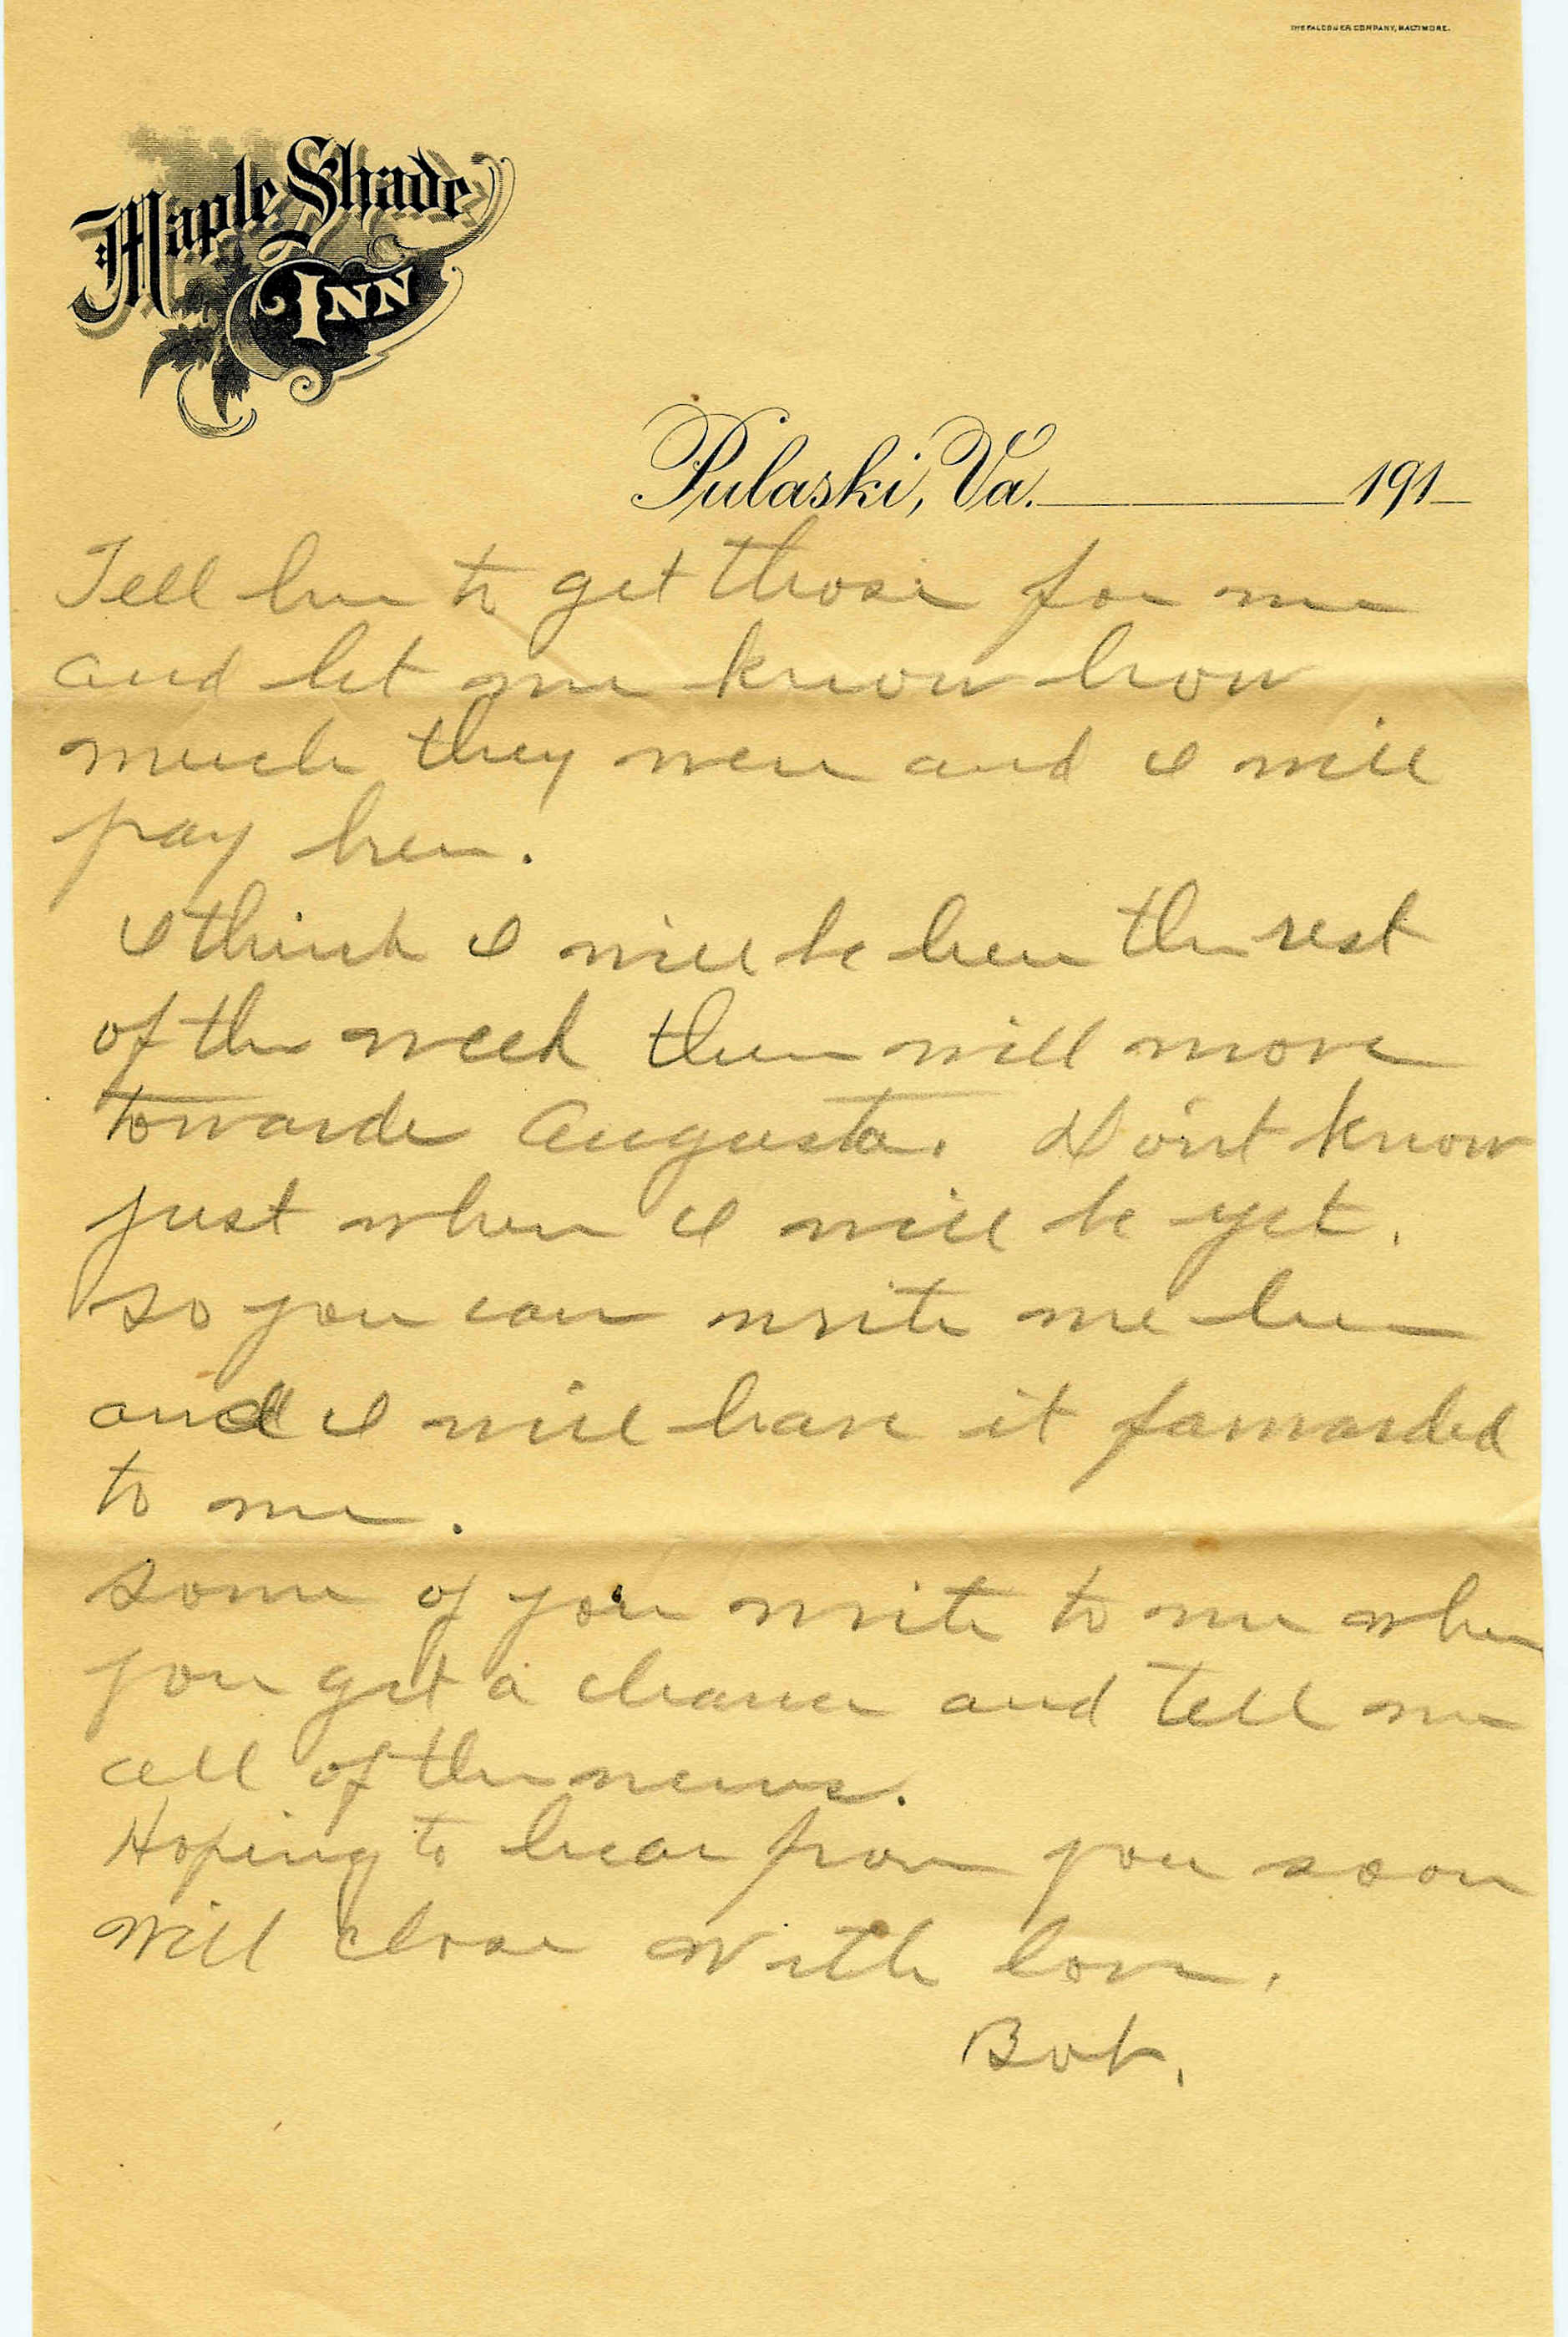 THE FALCONER COMPANY, BALTIMORE.
Maple Shade
INN
Pulaski, Va. 191
Tell her to get those for me
and let me know how
much they were and I will
pay her.
I think I will be here the rest
of the week then will move
towards Augusta. Don't know
just where I will be yet.
so you can write me here
and I will have it forwarded
to me.
Some of you write to me when
you get a chance and tell me
all of the news.
Hoping to hear from you soon
will close with love.
Bob.